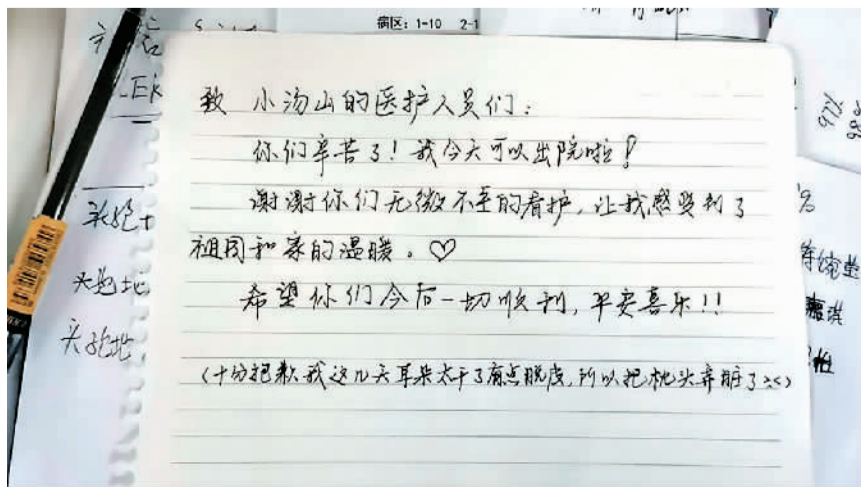 病区：1-10 2-1
致 小汤山的医护人员们：
你们辛苦了！我今天可以出院啦！
谢谢你们无微不至的看护，让我感受到了
祖国和家的温暖。♡
希望你们今后一切顺利，平安喜乐！！
（十分抱歉我这几天耳朵太干了有点脱皮，所以把枕头弄脏了>.<）
头孢
头孢地
头孢地
97%